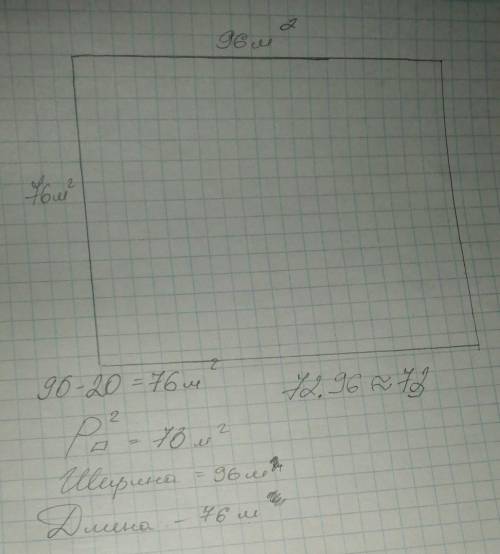 96м²
76м²
96-20=76м²
72.96≈73
P▱² = 73м²
Ширина = 96м
Длина - 76м